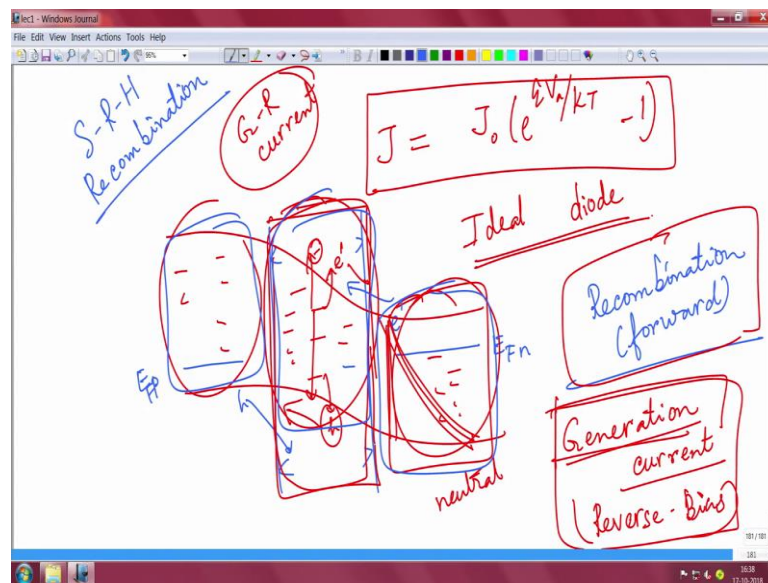 lec1 - Windows Journal
File Edit View Insert Actions Tools Help
96%
S-R-H
Recombination
G-R
current
J = J₀ (e^qVa/kT - 1)
Ideal diode
Recombination
(forward)
EFp
EFn
e
h
e
h
neutral
Generation
current
(Reverse-Bias)
181 / 181
181
16:38
17-10-2018